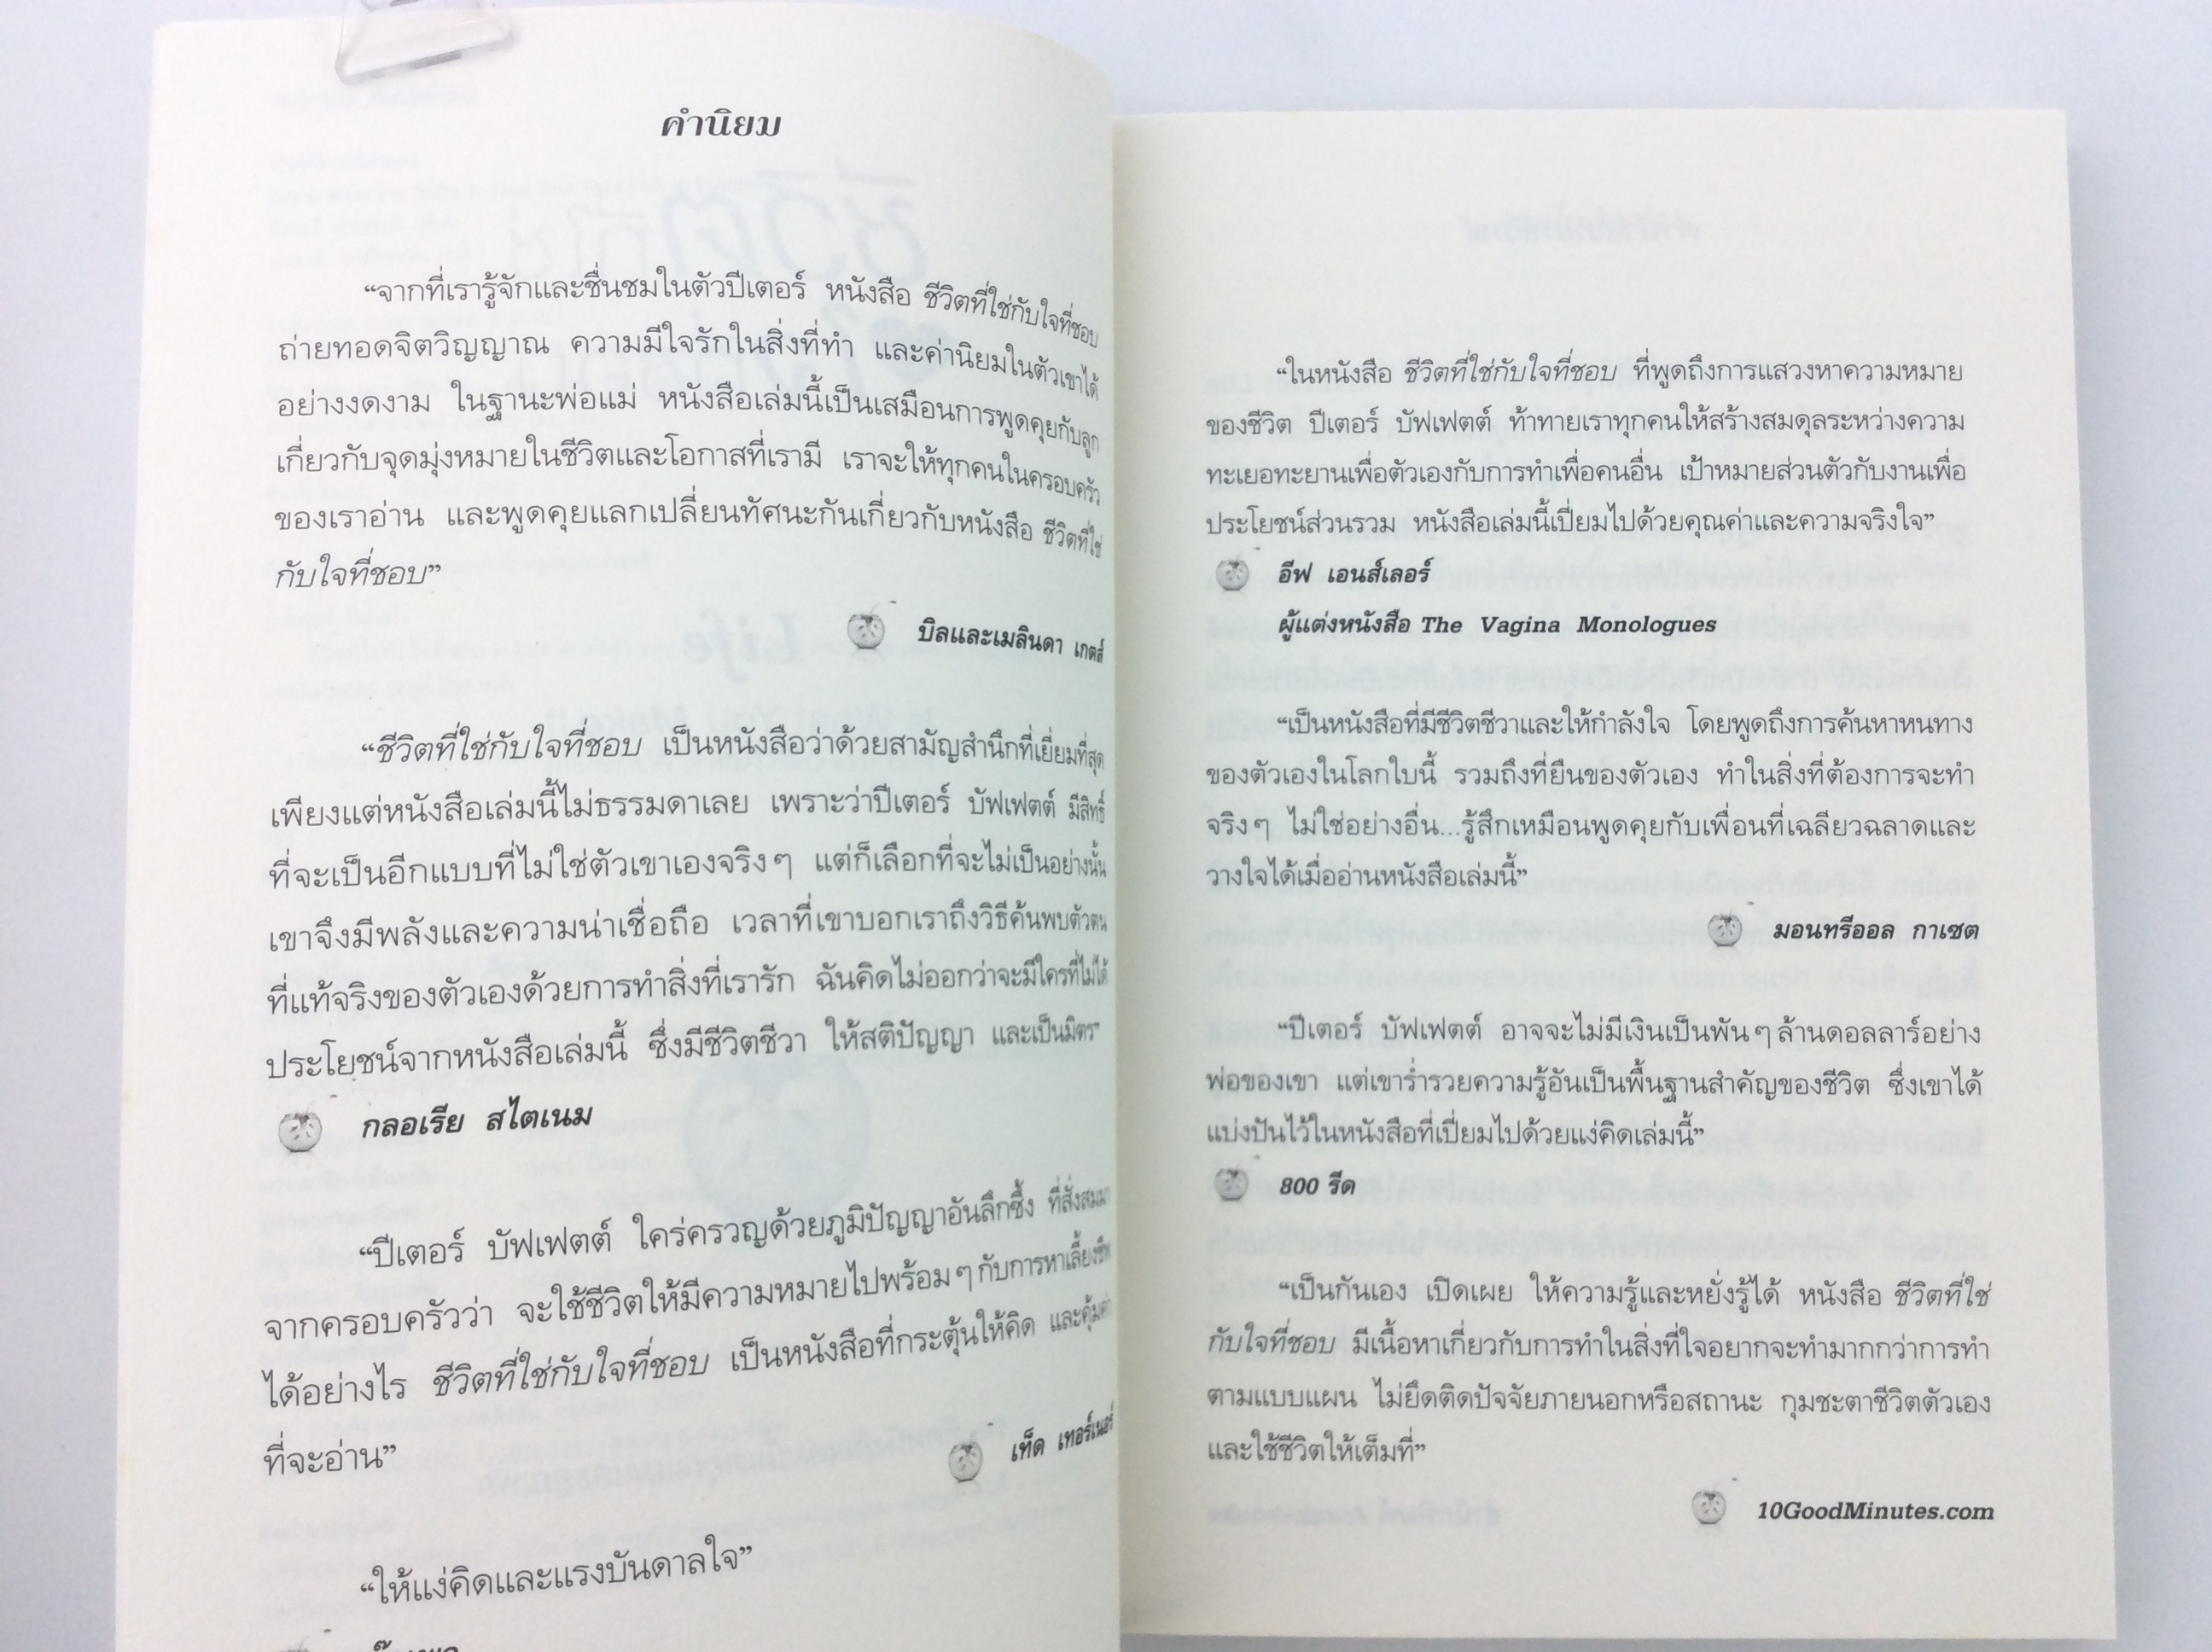 คำนิยม
“จากที่เรารู้จักและชื่นชมในตัวปีเตอร์ หนังสือ ชีวิตที่ใช่กับใจที่ชอบ
ถ่ายทอดจิตวิญญาณ ความมีใจรักในสิ่งที่ทำ และค่านิยมในตัวเขาได้
อย่างงดงาม ในฐานะพ่อแม่ หนังสือเล่มนี้เป็นเสมือนการพูดคุยกับลูก
เกี่ยวกับจุดมุ่งหมายในชีวิตและโอกาสที่เรามี เราจะให้ทุกคนในครอบครัว
ของเราอ่าน และพูดคุยแลกเปลี่ยนทัศนะกันเกี่ยวกับหนังสือ ชีวิตที่ใช่
กับใจที่ชอบ”
บิลและเมลินดา เกตส์
“ชีวิตที่ใช่กับใจที่ชอบ เป็นหนังสือว่าด้วยสามัญสำนึกที่เยี่ยมที่สุด
เพียงแต่หนังสือเล่มนี้ไม่ธรรมดาเลย เพราะว่าปีเตอร์ บัฟเฟตต์ มีสิทธิ์
ที่จะเป็นอีกแบบที่ไม่ใช่ตัวเขาเองจริงๆ แต่ก็เลือกที่จะไม่เป็นอย่างนั้น
เขาจึงมีพลังและความน่าเชื่อถือ เวลาที่เขาบอกเราถึงวิธีค้นพบตัวตน
ที่แท้จริงของตัวเองด้วยการทำสิ่งที่เรารัก ฉันคิดไม่ออกว่าจะมีใครที่ไม่ได้
ประโยชน์จากหนังสือเล่มนี้ ซึ่งมีชีวิตชีวา ให้สติปัญญา และเป็นมิตร”
กลอเรีย สไตเนม
“ปีเตอร์ บัฟเฟตต์ ใคร่ครวญด้วยภูมิปัญญาอันลึกซึ้ง ที่สั่งสมมา
จากครอบครัวว่า จะใช้ชีวิตให้มีความหมายไปพร้อมๆ กับการหาเลี้ยงชีพ
ได้อย่างไร ชีวิตที่ใช่กับใจที่ชอบ เป็นหนังสือที่กระตุ้นให้คิด และคุ้มค่า
ที่จะอ่าน”
เท็ด เทอร์เนอร์
“ให้แง่คิดและแรงบันดาลใจ”
“ในหนังสือ ชีวิตที่ใช่กับใจที่ชอบ ที่พูดถึงการแสวงหาความหมาย
ของชีวิต ปีเตอร์ บัฟเฟตต์ ท้าทายเราทุกคนให้สร้างสมดุลระหว่างความ
ทะเยอทะยานเพื่อตัวเองกับการทำเพื่อคนอื่น เป้าหมายส่วนตัวกับงานเพื่อ
ประโยชน์ส่วนรวม หนังสือเล่มนี้เปี่ยมไปด้วยคุณค่าและความจริงใจ”
อีฟ เอนส์เลอร์
ผู้แต่งหนังสือ The Vagina Monologues
“เป็นหนังสือที่มีชีวิตชีวาและให้กำลังใจ โดยพูดถึงการค้นหาหนทาง
ของตัวเองในโลกใบนี้ รวมถึงที่ยืนของตัวเอง ทำในสิ่งที่ต้องการจะทำ
จริงๆ ไม่ใช่อย่างอื่น...รู้สึกเหมือนพูดคุยกับเพื่อนที่เฉลียวฉลาดและ
วางใจได้เมื่ออ่านหนังสือเล่มนี้”
มอนทรีออล กาเซต
“ปีเตอร์ บัฟเฟตต์ อาจจะไม่มีเงินเป็นพันๆ ล้านดอลลาร์อย่าง
พ่อของเขา แต่เขาร่ำรวยความรู้อันเป็นพื้นฐานสำคัญของชีวิต ซึ่งเขาได้
แบ่งปันไว้ในหนังสือที่เปี่ยมไปด้วยแง่คิดเล่มนี้”
800 รีด
“เป็นกันเอง เปิดเผย ให้ความรู้และหยั่งรู้ได้ หนังสือ ชีวิตที่ใช่
กับใจที่ชอบ มีเนื้อหาเกี่ยวกับการทำในสิ่งที่ใจอยากจะทำมากกว่าการทำ
ตามแบบแผน ไม่ยึดติดปัจจัยภายนอกหรือสถานะ กุมชะตาชีวิตตัวเอง
และใช้ชีวิตให้เต็มที่”
10GoodMinutes.com